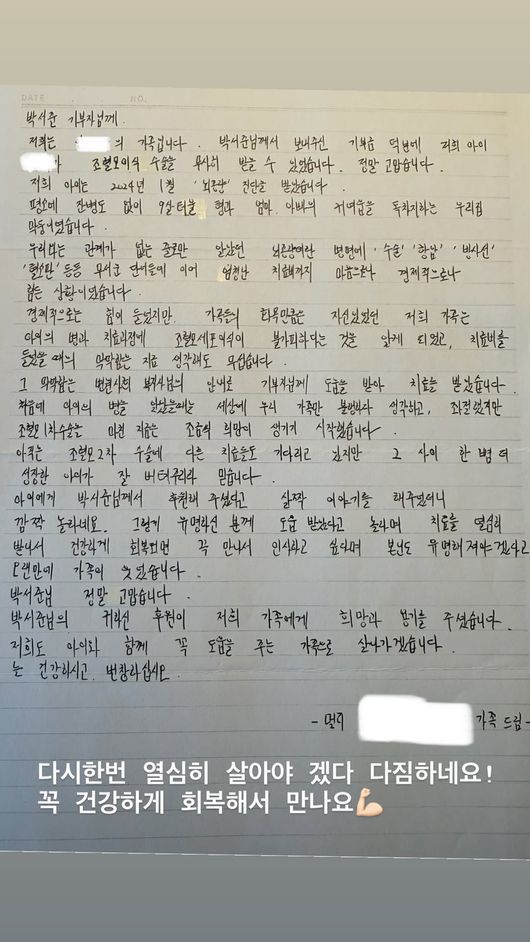 DATE . . . NO.
박서준 기부자님께.
저희는 의 가족입니다. 박서준님께서 보내주신 기부금 덕분에 저희 아이
가 조혈모이식 수술을 무사히 받을 수 있었습니다. 정말 고맙습니다.
저희 아이는 2024년 1월 '뇌종양' 진단을 받았습니다.
평소에 잔병도 없이 9살 터울 형과 엄마. 아빠의 귀여움을 독차지하는 우리집
막둥이였습니다.
우리와는 관계가 없는 줄로만 알았던 뇌종양이란 병명에 '수술' '항암' '방사선'
'혈소판' 등등 무서운 단어들에 이어 엄청난 치료비까지 마음으로나 경제적으로나
힘든 상황이었습니다.
경제적으로는 힘이 들었지만, 가족들의 화목만큼은 자신있었던 저희 가족은
아이의 병과 치료과정에 조혈모세포이식이 불가피하다는 것을 알게 되었고, 치료비를
들었을 때의 막막함은 지금 생각해도 무섭습니다.
그 막막함은 병원사회 복지사님의 안내로 기부자님께 도움을 받아 치료를 받았습니다.
처음에 아이의 병을 알았을때는 세상에 우리 가족만 불행하다 생각하고, 좌절했지만
조혈모1차수술을 마친 지금은 조금씩 희망이 생기기 시작했습니다.
아직은 조혈모2차 수술에 다른 치료들도 기다리고 있지만 그 사이 한 뼘 더
성장한 아이가 잘 버텨주리라 믿습니다.
아이에게 박서준님께서 후원해 주셨다고 살짝 이야기를 해주었더니
깜짝 놀라네요. 그렇게 유명하신 분께 도움 받았다고 놀라며 치료를 열심히
받아서 건강하게 회복되면 꼭 만나서 인사하고 싶다며 본인도 유명해져야겠다고
오랜만에 가족이 웃었습니다.
박서준님 정말 고맙습니다.
박서준님의 귀하신 후원이 저희 가족에게 희망과 용기를 주셨습니다.
저희도 아이와 함께 꼭 도움을 주는 가족으로 살아가겠습니다.
늘 건강하시고. 번창하십시오.
- 멀리 가족 드림 -
다시한번 열심히 살아야 겠다 다짐하네요!
꼭 건강하게 회복해서 만나요💪🏻